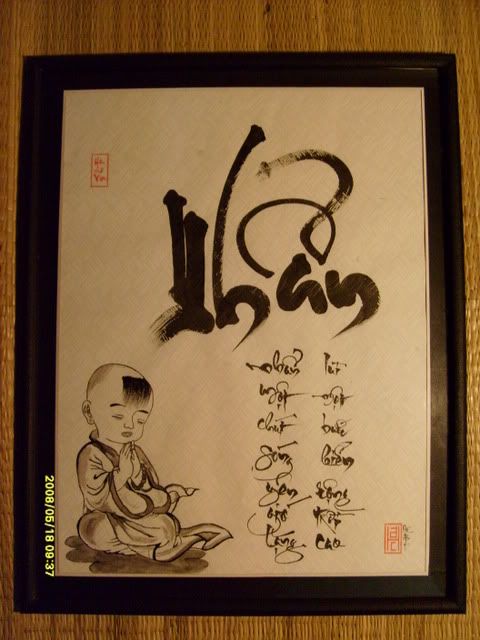 Nhẫn
nhẫn một chút sóng yên gió lặng
lùi một bước biển rộng trời cao
2008/06/18 09:37